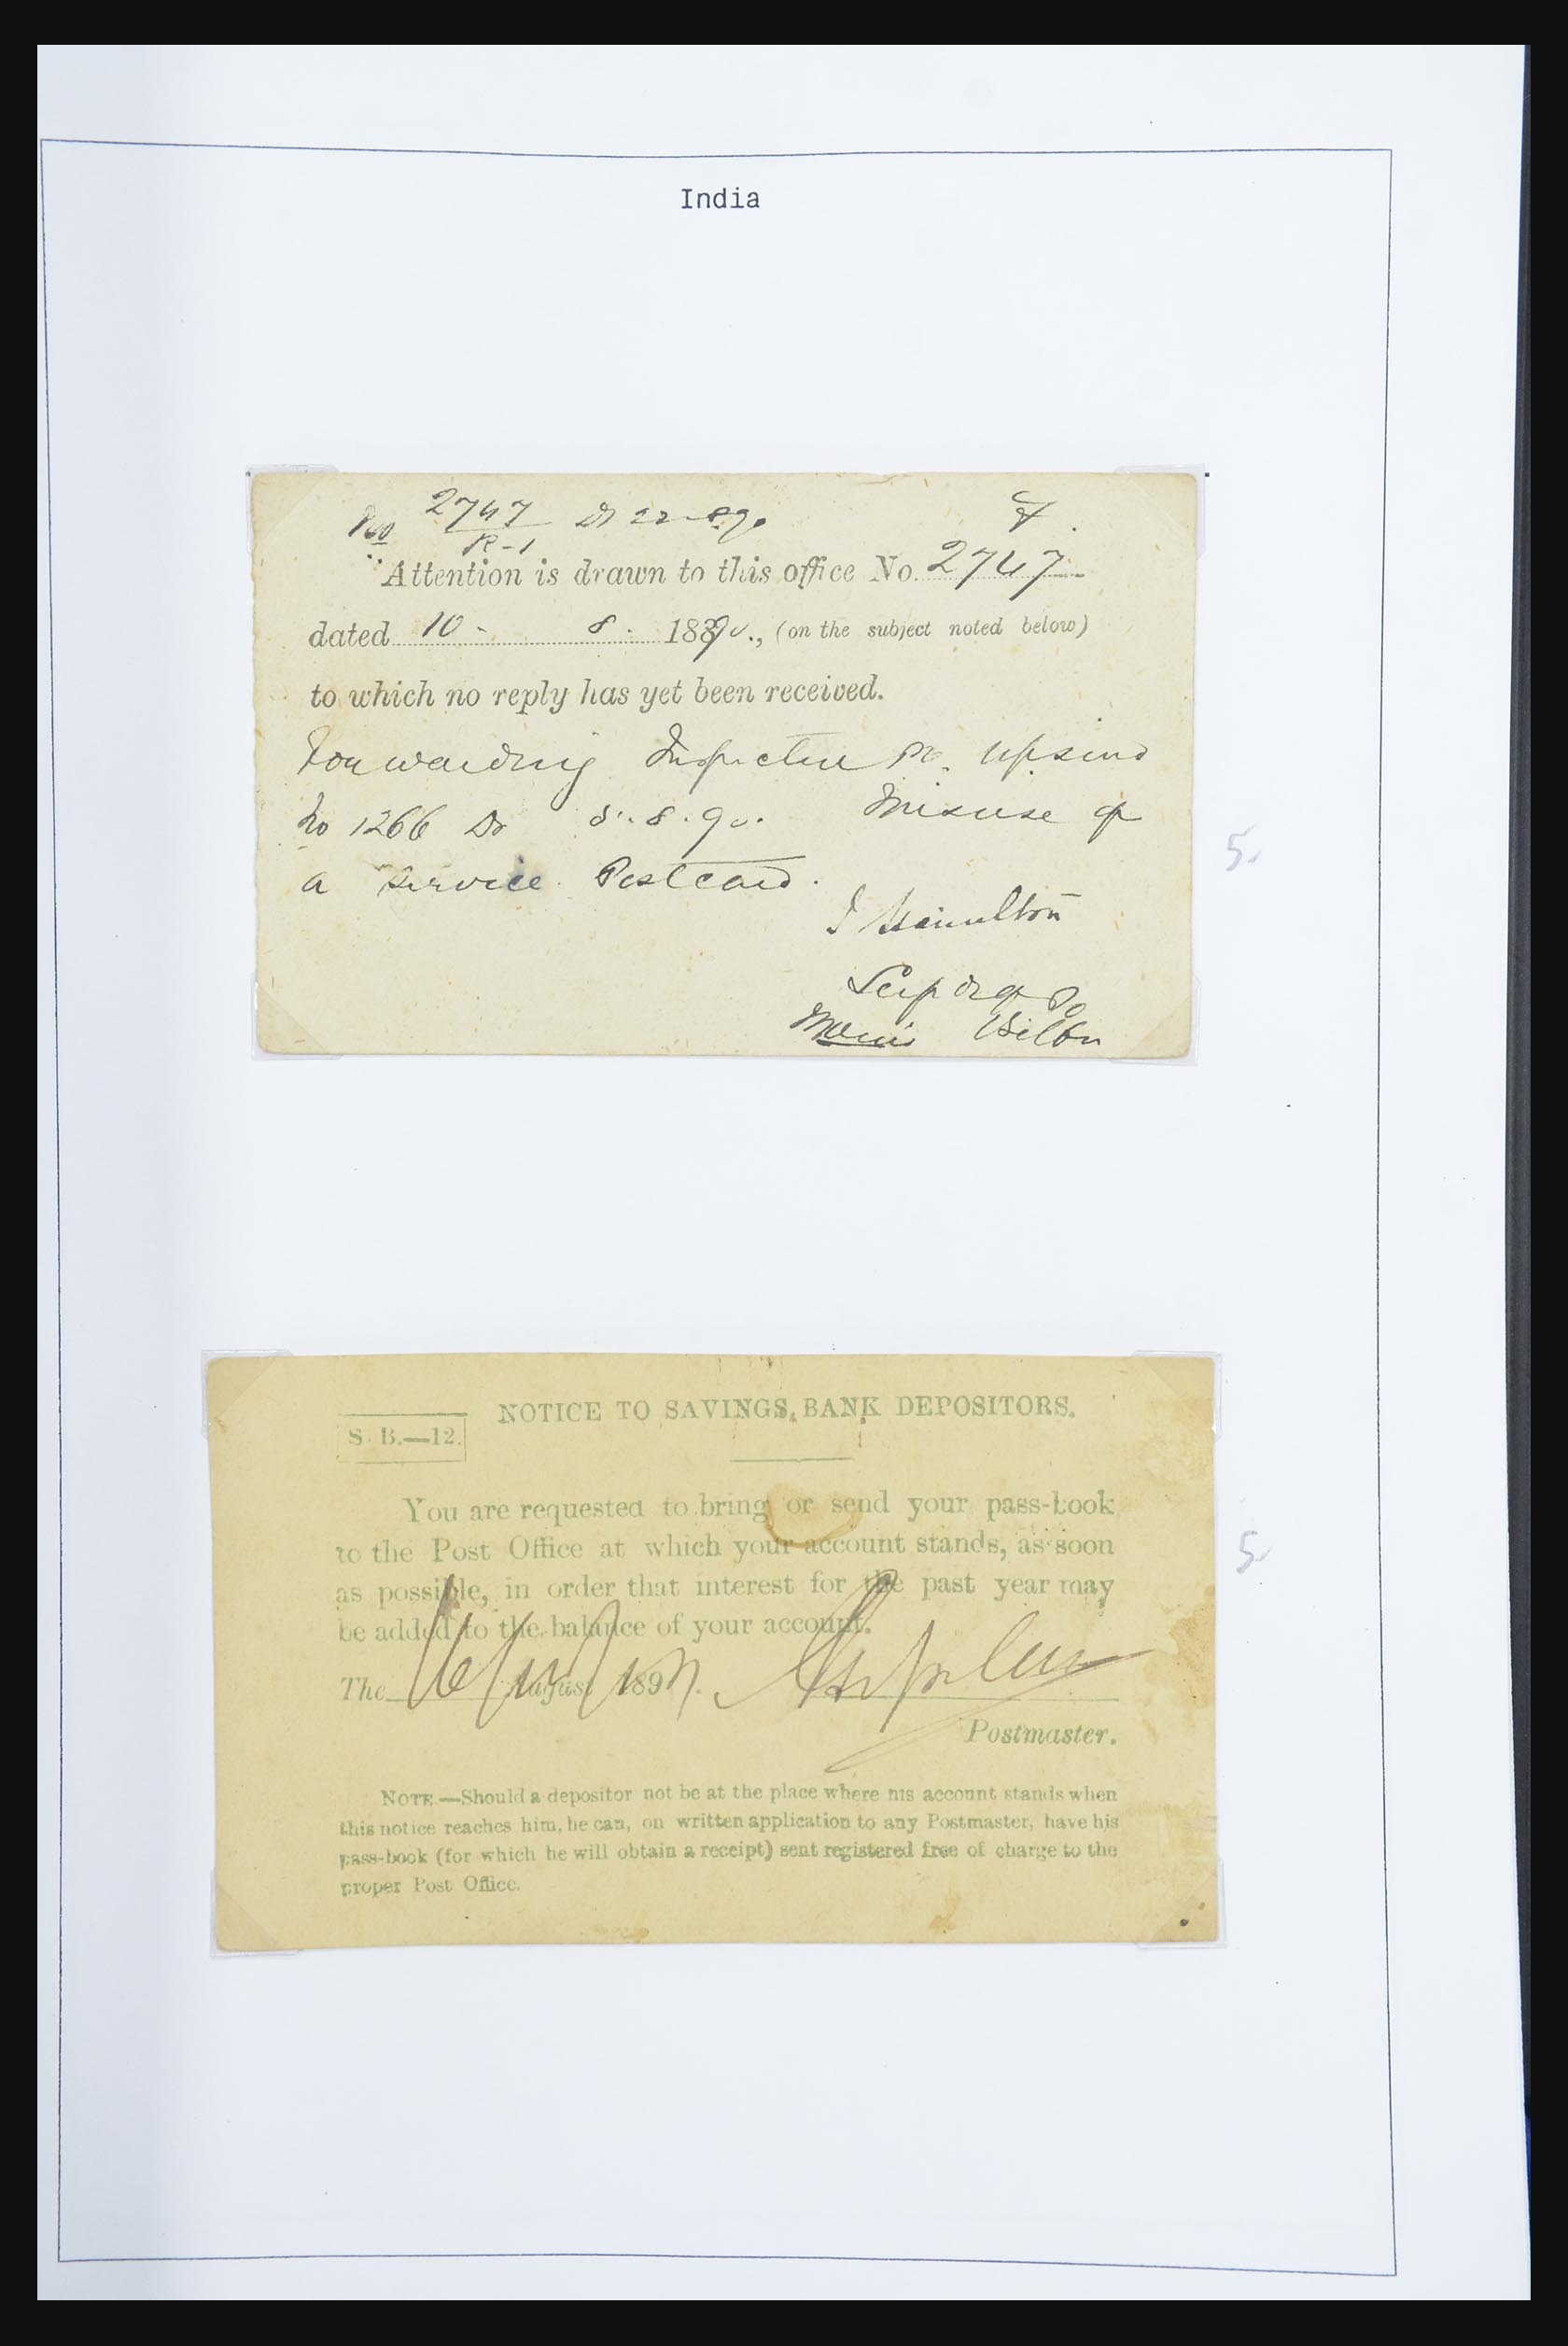 India
No 2747 22-8-90
R-1
Attention is drawn to this office No. 2747
dated 10 - 8 . 1890., (on the subject noted below)
to which no reply has yet been received.
Forwarding Inspector PO. Upsind
No 1266 Dr 5.8.90. Misuse of
a Service Postcard.
J Hamilton
5
NOTICE TO SAVINGS BANK DEPOSITORS.
S. B.—12.
You are requested to bring or send your pass-book
to the Post Office at which your account stands, as soon
as possible, in order that interest for the past year may
be added to the balance of your account.
The August 189
5
Postmaster.
NOTE.—Should a depositor not be at the place where his account stands when
this notice reaches him, he can, on written application to any Postmaster, have his
pass-book (for which he will obtain a receipt) sent registered free of charge to the
proper Post Office.